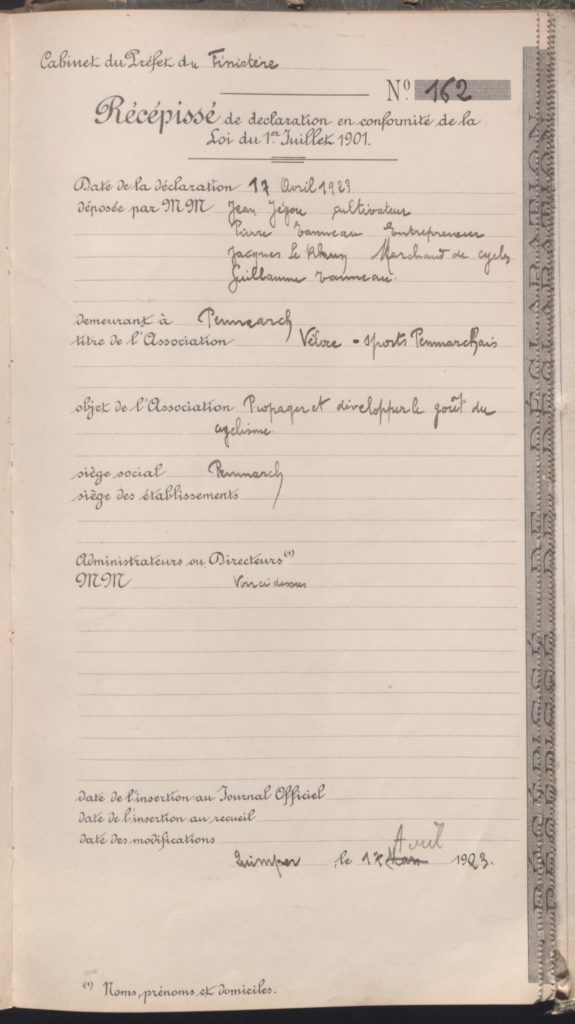 Cabinet du Préfet du Finistère
N° 162
Récépissé de declaration en conformité de la
Loi du 1er Juillet 1901.
Date de la déclaration 17 Avril 1923
déposée par MM Jean Jégou cultivateur
Pierre Tanneau Entrepreneur
Jacques Le Marchand de cycles
Guillaume Tanneau.
demeurant à Penmarch
titre de l'Association Véloce-Sports Penmarchais
objet de l'Association Propager et développer le goût du
cyclisme
siège social Penmarch
siège des établissements
Administrateurs ou Directeurs (1)
MM Voir ci dessus
date de l'insertion au Journal Officiel
date de l'insertion au recueil
date des modifications
Avril
Quimper le 17 Mars 1923.
(1) Noms, prénoms, et domiciles.
RÉCÉPISSÉ DE DÉCLARATION